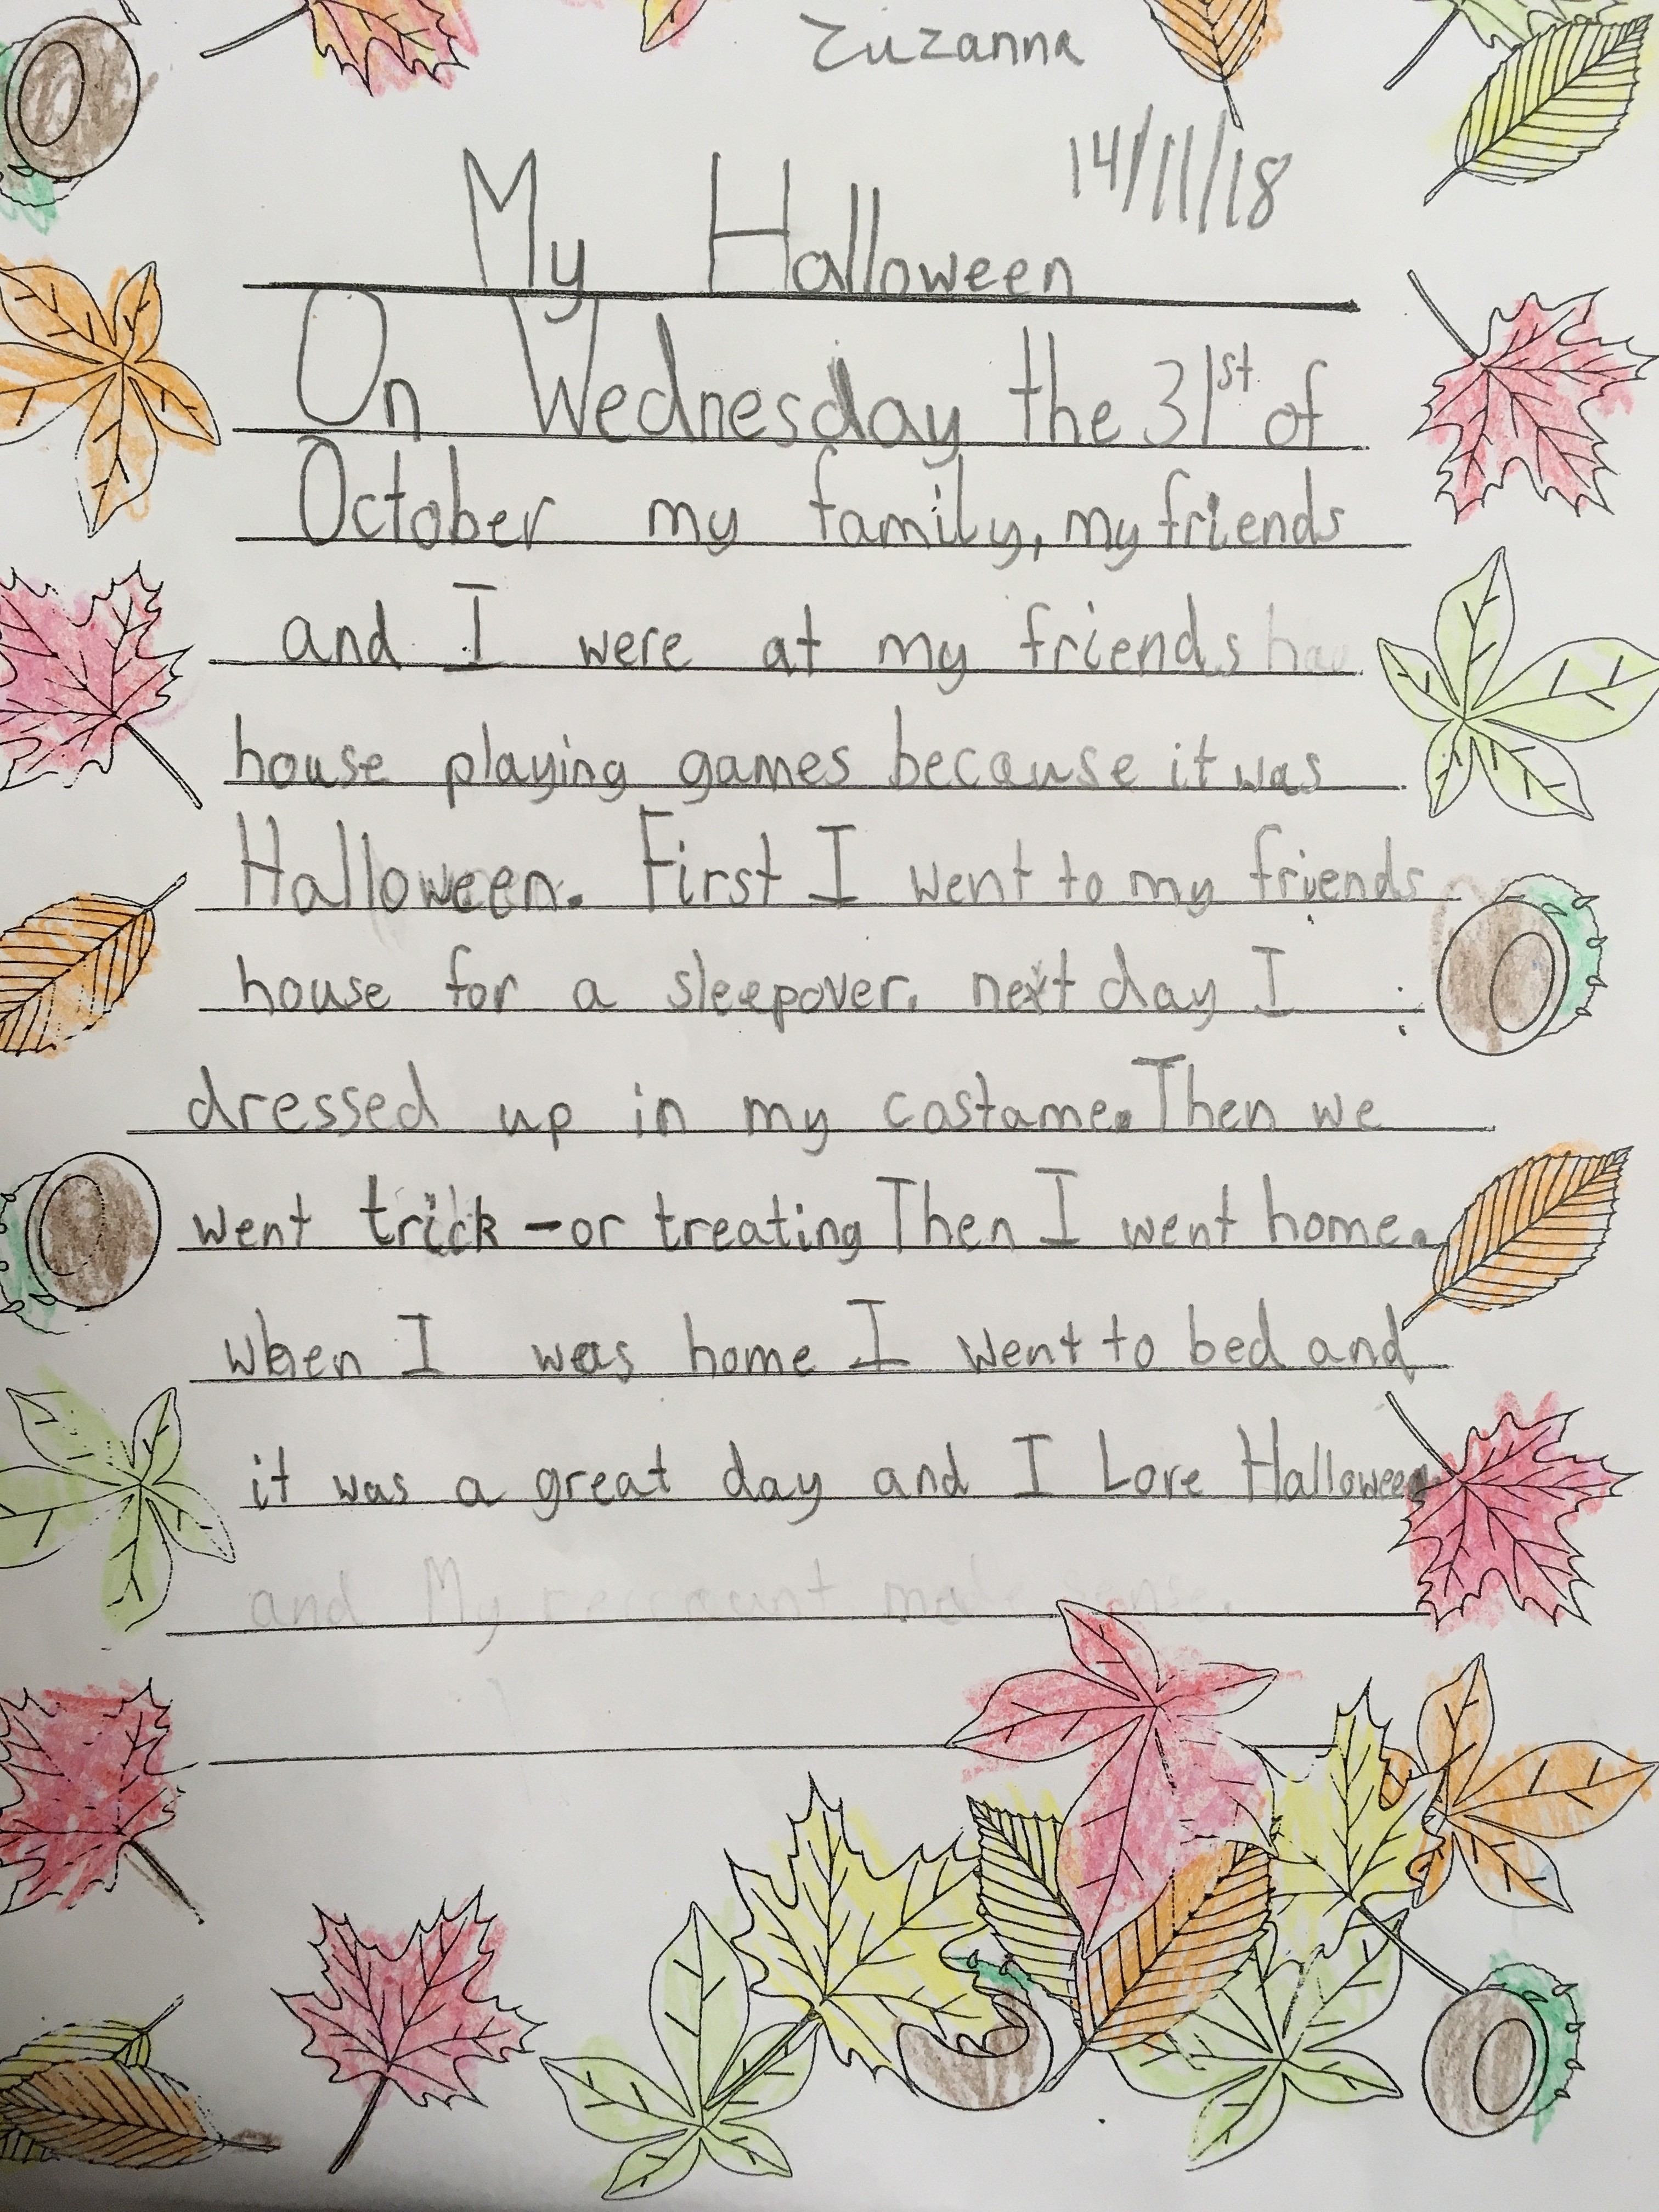 Zuzanna
14/11/18
My Halloween
On Wednesday the 31st of
October my family, my friends
and I were at my friends
house playing games because it was
Halloween. First I went to my friends
house for a sleepover. next day I
dressed up in my costame. Then we
went trick-or treating Then I went home.
when I was home I went to bed and
it was a great day and I Love Halloween
and My reccount made sense.